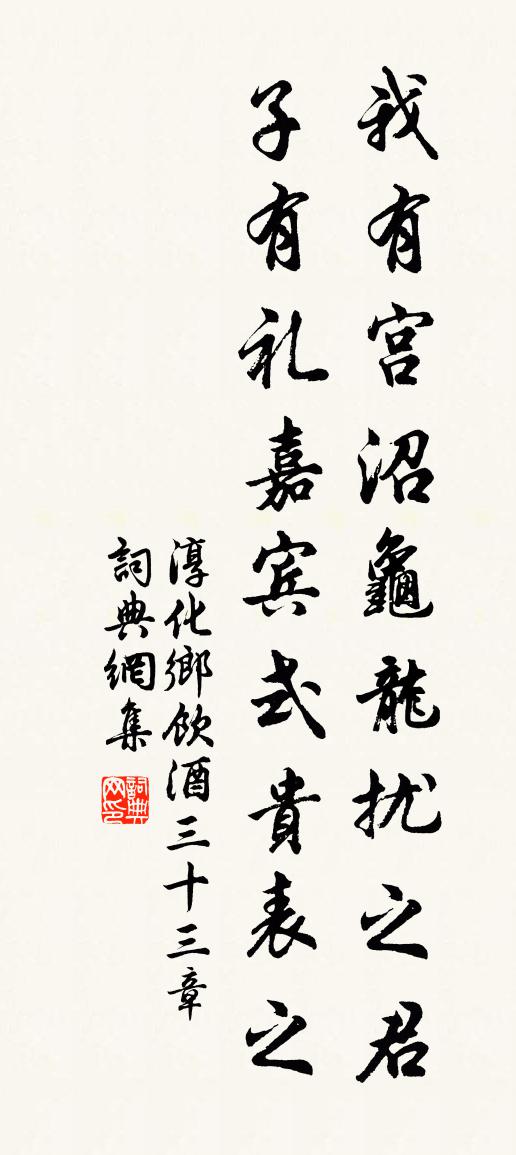 我有宮沼龜龍扰之君
子有礼嘉宾式貴表之
淳化鄉飲酒三十三章
詞典網集
詞典網印